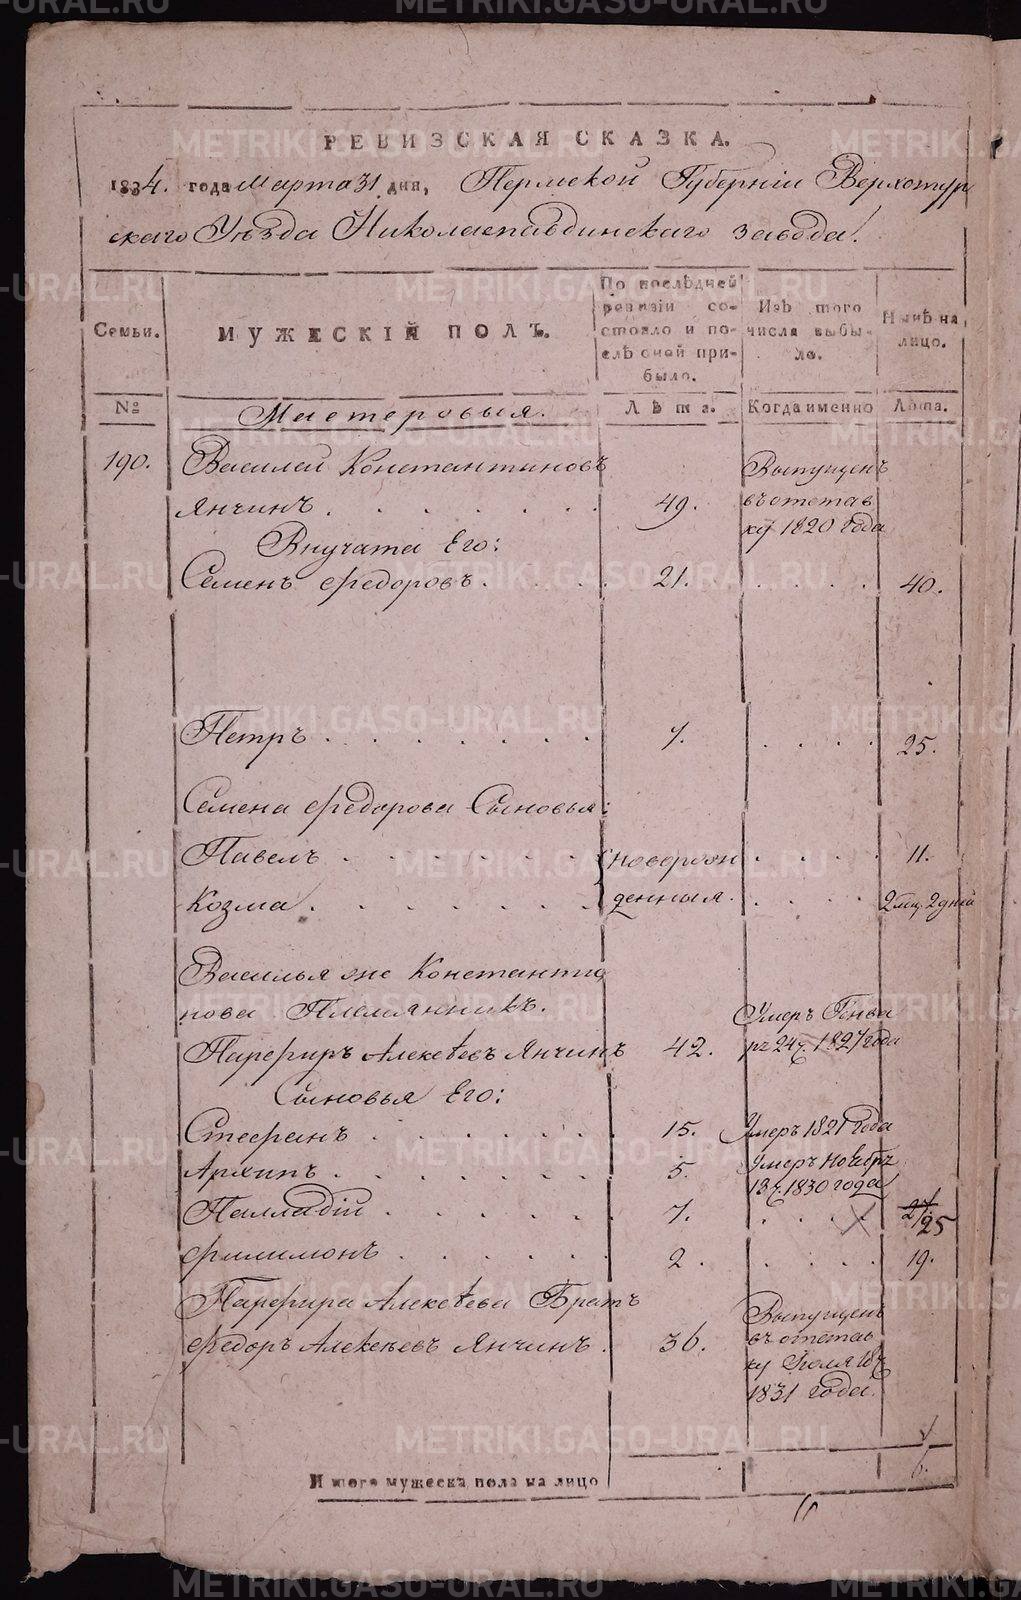 РЕВИЗСКАЯ СКАЗКА.
1834. года Марта 31 дня, Пермской Губерніи Верхотур
скаго Уѣзда Николаепавдинскаго завода.
Семьи.
МУЖЕСКІЙ ПОЛЪ.
По послѣдней
ревизіи со-
стояло и по-
слѣ оной при-
было.
Изъ того
числа выбы-
ло.
Нынѣ на
лицо.
№
Мастеровыя.
Лѣта.
Когда именно
Лѣта.
190.
Василей Константиновъ
Янчинъ.
49.
Выпущенъ
въ отстав
ку 1820 года
Внучата Его:
Семенъ Федоровъ.
21.
40.
Петръ
7.
25.
Семена Федорова Сыновья:
Павелъ
новорож
11.
Козма.
денныя.
2 мц. 2 дній
Василья же Константи
нова Племянникъ.
Парфиръ Алексѣевъ Янчинъ
42.
Умеръ Генва
ря 24 ч. 1827 года
Сыновья Его:
Стефанъ
15.
Умеръ 1821 года
Архипъ.
5.
Умеръ Ноября
13 ч. 1830 года
Палладій
7.
27/25
Филимонъ
2.
19.
Парфира Алексѣева Братъ
Федоръ Алексѣевъ Янчинъ.
36.
Выпущенъ
въ отстав
ку Іюля 18 ч
1831 года.
Итого мужеска пола на лицо
6.
METRIKI.GASO-URAL.RU